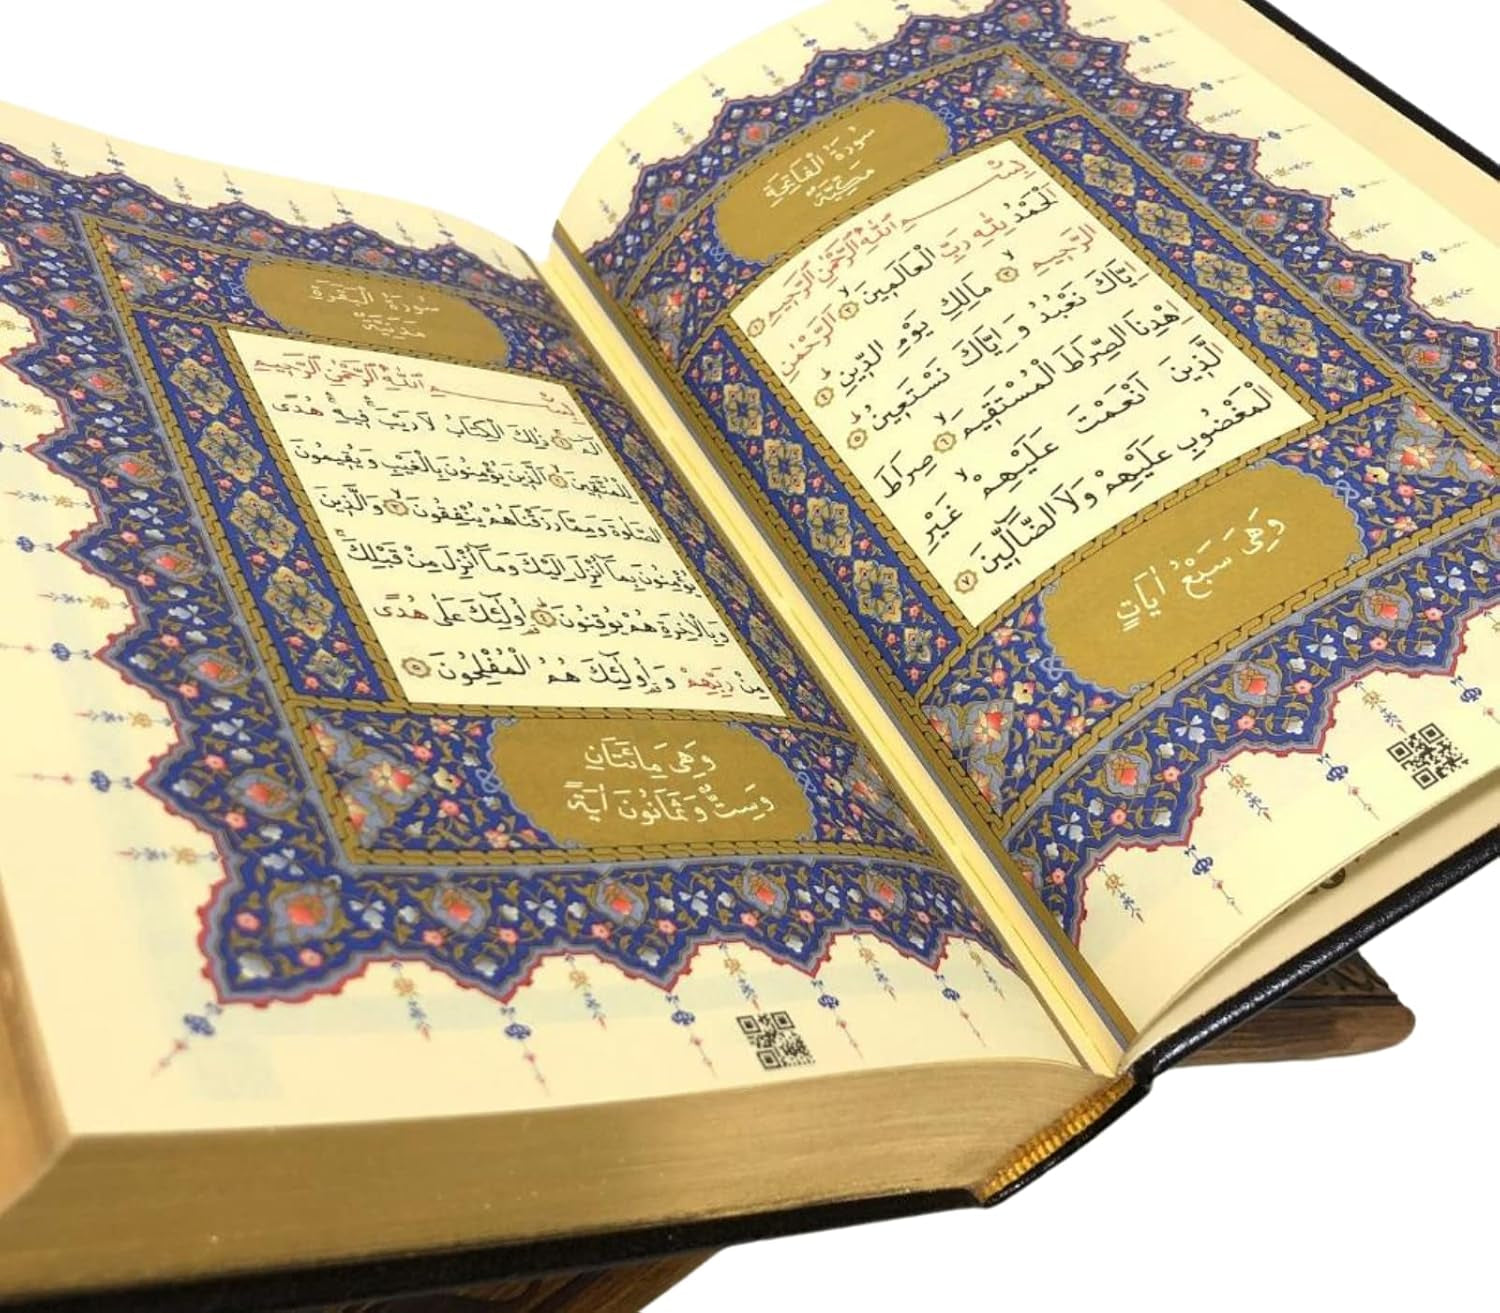 سُورَةُ الْفَاتِحَةِ
مَكِّيَّةٌ
بِسْمِ اللّٰهِ الرَّحْمٰنِ الرَّحِيمِ ﴿١﴾
اَلْحَمْدُ لِلّٰهِ رَبِّ الْعَالَمِينَۙ ﴿٢﴾ اَلرَّحْمٰنِ
الرَّحِيمِۙ ﴿٣﴾ مَالِكِ يَوْمِ الدِّينِۜ ﴿٤﴾
اِيَّاكَ نَعْبُدُ وَاِيَّاكَ نَسْتَعِينُۜ ﴿٥﴾
اِهْدِنَا الصِّرَاطَ الْمُسْتَقِيمَۙ ﴿٦﴾ صِرَاطَ
الَّذِينَ اَنْعَمْتَ عَلَيْهِمْۙ غَيْرِ
الْمَغْضُوبِ عَلَيْهِمْ وَلَا الضَّٓالِّينَ ﴿٧﴾
وَهِىَ سَبْعُ اٰيَاتٍ
سُورَةُ الْبَقَرَةِ
مَدَنِيَّةٌ
بِسْمِ اللّٰهِ الرَّحْمٰنِ الرَّحِيمِ
الٓمٓ ﴿١﴾ ذٰلِكَ الْكِتَابُ لَا رَيْبَۚ فِيهِۚ هُدًى
لِلْمُتَّقِينَۙ ﴿٢﴾ اَلَّذِينَ يُؤْمِنُونَ بِالْغَيْبِ وَيُقِيمُونَ
الصَّلٰوةَ وَمِمَّا رَزَقْنَاهُمْ يُنْفِقُونَۙ ﴿٣﴾ وَالَّذِينَ
يُؤْمِنُونَ بِمَٓا اُنْزِلَ اِلَيْكَ وَمَٓا اُنْزِلَ مِنْ قَبْلِكَۚ
وَبِالْاٰخِرَةِ هُمْ يُوقِنُونَۜ ﴿٤﴾ اُو۬لٰٓئِكَ عَلٰى هُدًى
مِنْ رَبِّهِمْ وَاُو۬لٰٓئِكَ هُمُ الْمُفْلِحُونَ ﴿٥﴾
وَهِىَ مِائَتَانِ
وَسِتٌّ وَثَمَانُونَ اٰيَةً